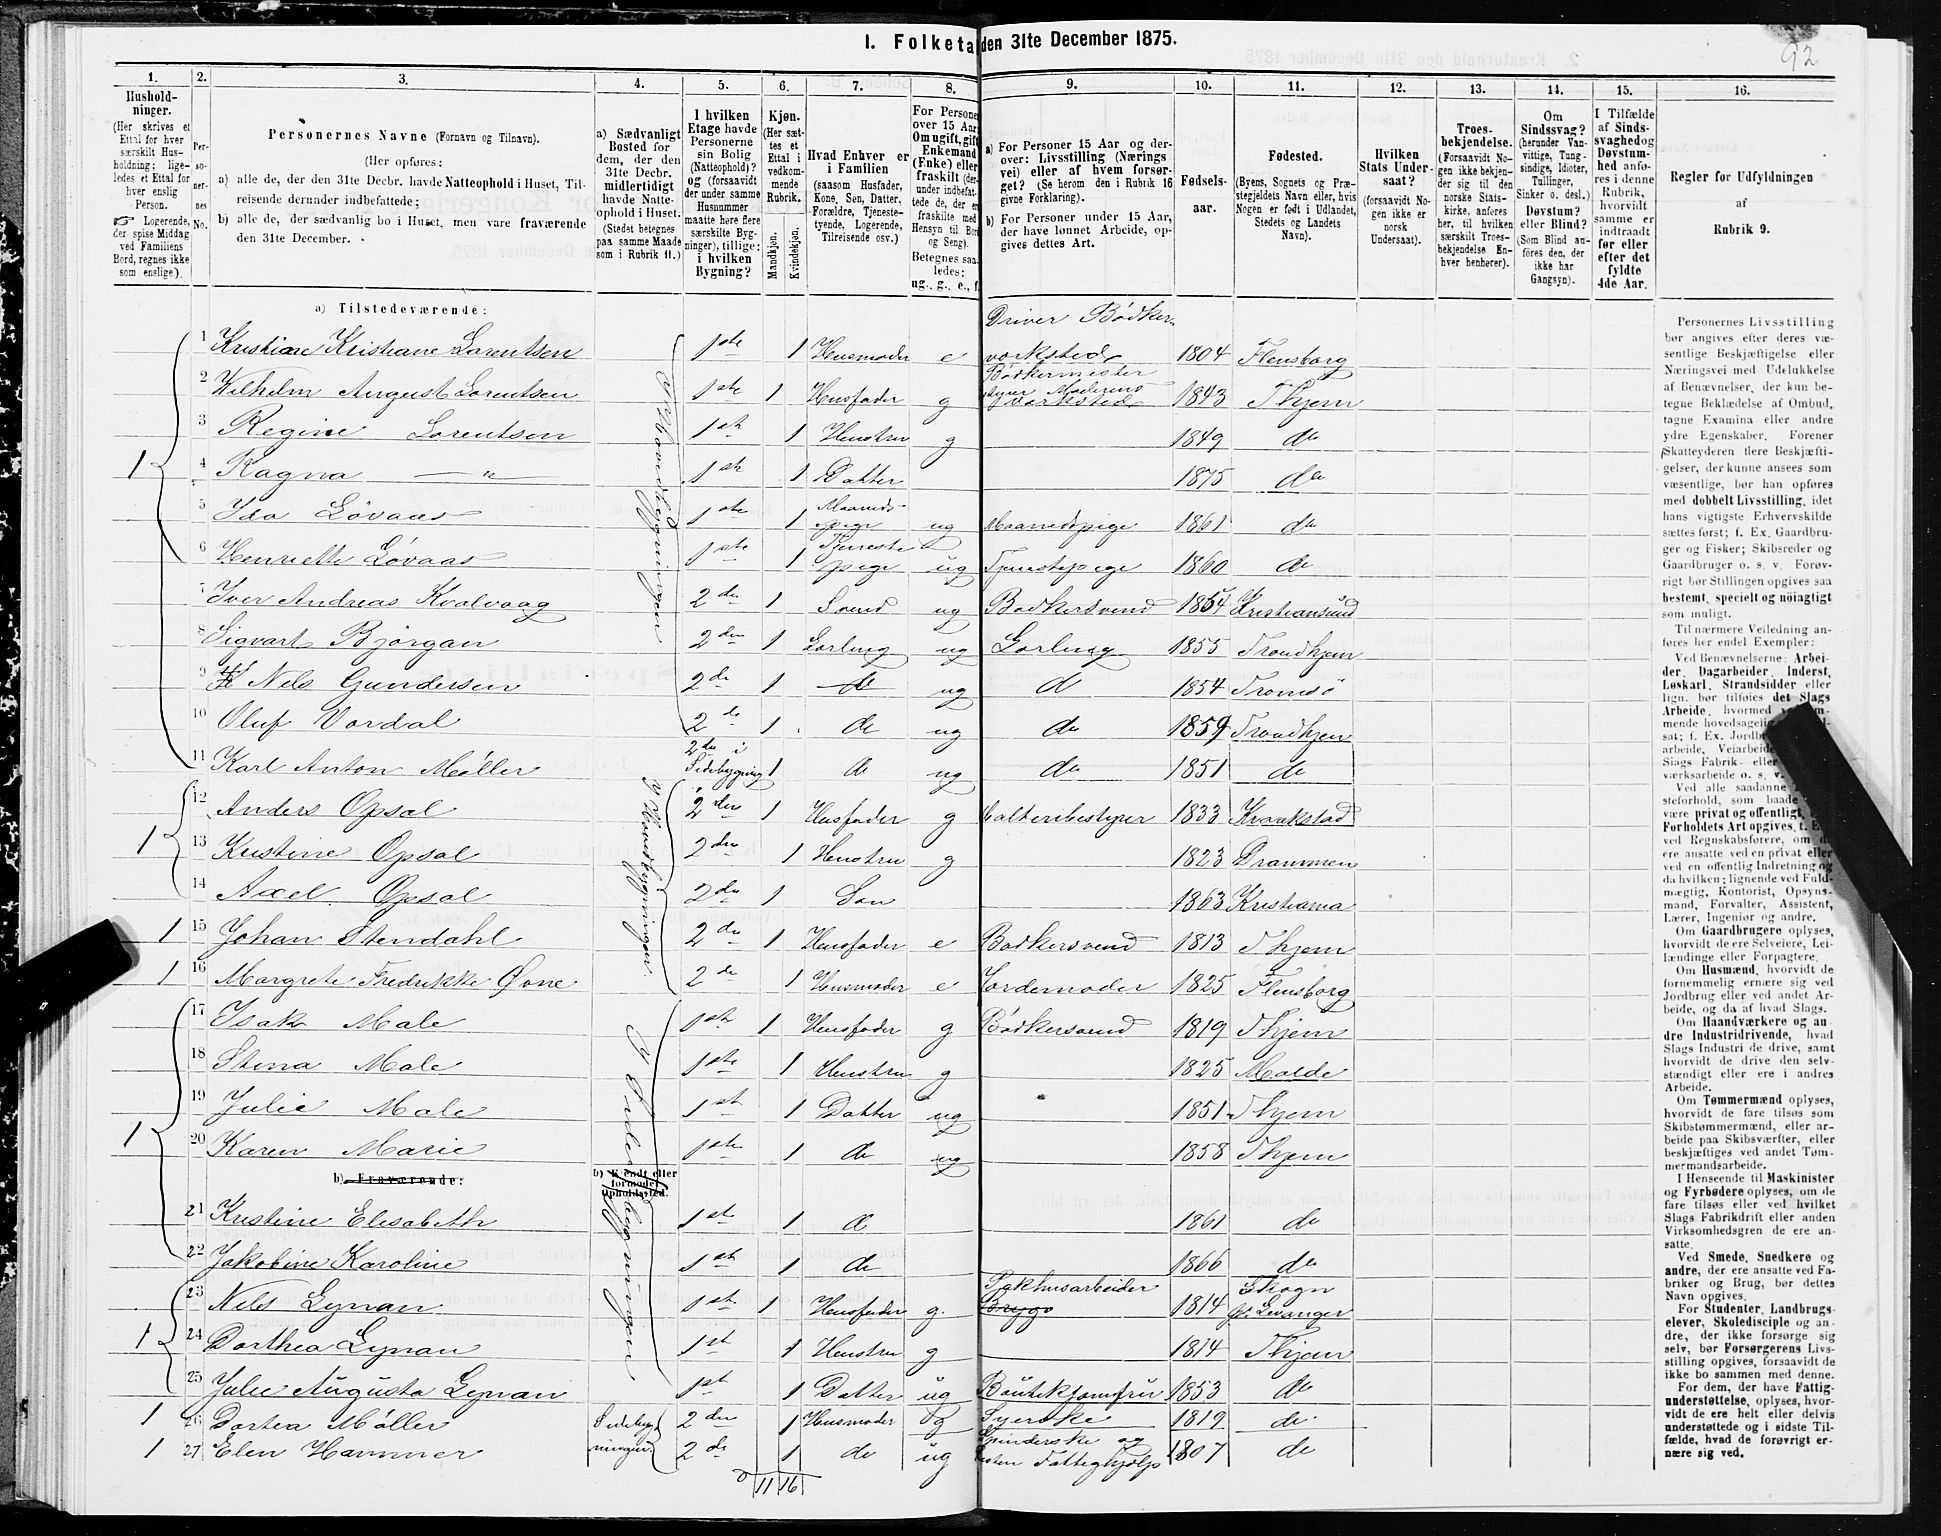 1. Folketa den 31te December 1875.
92
1. 2. 3. 4. 5. 6. 7. 8. 9. 10. 11. 12. 13. 14. 15. 16.
Husholdninger. (Her skrives et Ettal for hver særskilt Husholdning; ligeledes et Ettal for hver enslig Person. Logerende, der spise Middag ved Familiens Bord, regnes ikke som enslige).
Personernes No.
Personernes Navne (Fornavn og Tilnavn).
(Her opføres:
a) alle de, der den 31te Decbr. havde Natteophold i Huset, Tilreisende derunder indbefattede;
b) alle de, der sædvanlig bo i Huset, men vare fraværende den 31te December.
a) Sædvanligt Bosted for dem, der den 31te Decbr. midlertidigt havde Natteophold i Huset. (Stedet betegnes paa samme Maade som i Rubrik 11.)
I hvilken Etage havde Personerne sin Bolig (Natteophold)? og (forsaavidt der under samme Husnummer maatte høre flere særskilte Bygninger), tillige: i hvilken Bygning?
Kjøn. (Her sættes et Ettal i vedkommende Rubrik.
Mandkjøn. Kvindekjøn.
Hvad Enhver er i Familien (saasom Husfader, Kone, Søn, Datter, Forældre, Tjenestetyende, Logerende, Tilreisende osv.)
For Persone over 15 Aar Om ugift, gift Enkemand (Enke) eller fraskilt (derunder indbefattede de, der er fraskilte med Hensyn til Bord og Seng). Betegnes saaledes: ug., g., e., f.
a) For Personer 15 Aar og derover: Livsstilling (Næringsvei) eller af hvem forsørget? (Se herom den i Rubrik 16 givne Forklaring).
b) For Personer under 15 Aar, der have lønnet Arbeide, opgives dettes Art.
Fødselsaar.
Fødested. (Byens, Sognets og Præstegjeldets Navn eller, hvis Nogen er født i Udlandet, Stedets og Landets Navn).
Hvilken Stats Undersaat? (forsaavidt Nogen ikke er norsk Undersaat).
Troesbekjendelse. (Forsaavidt Nogen ikke bekjender sig til den norske Statskirke, anføres her, til hvilken særskilt Troesbekjendelse Enhver henhører).
Om Sindssvag? (herunder Vanvittige, Tungsindige, Idioter, Tullinger, Sinker o. desl.) Døvstum? eller Blind? (Som Blind anføres den, der ikke har Gangsyn).
I Tilfælde af Sindssvaghed og Døvstumhed anføres i denne Rubrik, hvorvidt samme er indtraadt før eller efter det fyldte 4de Aar.
Regler for Udfyldningen af Rubrik 9.
a) Tilstedeværende:
Driver Bödker
1 Kristiane Lorentsen 1ste 1 Husmoder e verksted 1804 Flensborg
Bödkermester
2 Wilhelm August Lorentsen 1ste 1 Husfader g styrer Moderens verksted 1843 Thjem
3 Regine Lorentsen 1st 1 Hustru g 1849 do
1 4 Ragna — " — 1ste 1 Datter 1875 do
5 Ida Lövaas 1ste 1 Maanedspige ug Maanedspige 1861 do
6 Henriette Lövaas 1ste 1 Tjenestepige ug Tjenestepige 1860 do
i Hovedbygningen
7 Iver Andreas Kvalvaag 2den 1 Svend ug Bødkersvend 1854 Kristiansund
8 Sigvart Bjørgan 2den 1 Lærling ug Lærling 1855 Trondhjem
9 Nils Gundersen 2de 1 do ug do 1854 Tromsö
10 Oluf Vordal 2de 1 do ug do 1859 Trondhjem
11 Karl Anton Møller 2den i Sidebygning 1 do ug do 1851 do
1 12 Anders Opsal 2den 1 Husfader g Salteribestyrer 1833 Kraakstad
13 Kristine Opsal 2den 1 Hustru g 1823 Drammen
14 Axel Opsal 2den 1 Søn 1863 Kristiania
i Hovedbygningen
1 15 Johan Stendahl 2de 1 Husfader e Bødkersvend 1813 Thjem
1 16 Margrete Fredrikke Øvne 2de 1 Husmoder e Jordemoder 1825 Flensborg
17 Isak Male 1ste 1 Husfader g Bödkersvend 1819 Thjem
18 Stina Male 1ste 1 Hustru g 1825 Molde
19 Julie Male 1st 1 Datter ug 1851 Thjem
1 20 Karen Marie 1ste 1 do ug 1858 Thjem
i Sidebygningen
b) Fraværende:
b) Kjendt eller formodet Opholdssted.
21 Kristine Elisabeth 1st 1 do 1861 do
22 Jakobine Karoline 1st 1 do 1866 do
23 Nils Lynan 1st 1 Husfader g. Pakhusarbeider Brygge 1814 Skogn Pr. Levanger
1 24 Dorthea Lynan 1st 1 Hustru g 1814 Thjem
25 Julie Augusta Lynan 1st 1 Datter ug Boutikjomfru 1853 do
1 26 Dortea Møller Sidebygningen 2den 1 Husmoder Syerske 1819 do
1 27 Elen Hammer 2de 1 do ug Spinderske og Fattighjælp 1807 do
11 16
Personernes Livsstilling
bør angives efter deres væ-
sentlige Beskjæftigelse eller
Næringsvei med Udelukkelse
af Benævnelser, der kun be-
tegne Beklædelse af Ombud,
tagne Examina eller andre
ydre Egenskaber. Forener
Skatteyderen flere Beskjæfti-
gelser, der kunne ansees som
væsentlige, bør han opføres
med dobbelt Livsstilling, idet
hans vigtigste Erhvervskilde
sættes først; f. Ex. Gaardbru-
ger og Fisker; Skibsreder og
Gaardbruger o. s. v. Forøv-
rigt bør Stillingen opgives saa
bestemt, specielt og nöiagtigt
som muligt.
Til nærmere Veiledning an-
føres her endel Exempler:
Ved Benævnelserne: Arbei-
der, Dagarbeider, Inderst,
Løskarl, Strandsidder eller
lign. bør tilføies det Slags
Arbeide, hvormed
mende hovedsagelig
sat; f. Ex.
arbeide, Veiarbeide
Slags Fabrik- eller
værksarbeide o. s. v.
Ved alle saadanne
steforhold, som baade
være privat og offentligt,
Forholdets Art opgives, t. E
ved Regnskabsførere, om
ere ansatte ved en privat eller
ved en offentlig Indretning og
da hvilken; lignende ved Fuld-
mægtig, Kontorist, Opsyns-
mand, Forvalter, Assistent,
Lærer, Ingeniør og andre.
Om Gaardbrugere oplyses,
hvorvidt de ere Selveiere, Lei-
lændinge eller Forpagtere.
Om Husmænd, hvorvidt de
fornemmelig ernære sig ved
Jordbrug eller ved andet Ar-
beide, og da af hvad Slags.
Om Haandværkere og an-
dre Industridrivende, hvad
Slags Industri de drive, samt
hvorvidt de drive den selv-
stændigt eller ere i andres
Arbeide.
Om Tømmermænd oplyses,
hvorvidt de fare tilsøs som
Skibstømmermænd, eller ar-
beide paa Skibsværfter, eller
beskjæftiges ved andet Tøm-
mermandsarbeide.
I Henseende til Maskinister
og Fyrbødere oplyses, om de
fare tilsøs eller ved hvilket
Slags Fabrikdrift eller anden
Virksomhedsgren de ere an-
satte.
Ved Smede, Snedkere og
andre, der ere ansatte ved Fa-
briker og Brug, bør dettes
Navn opgives.
For Studenter, Landbrugs-
elever, Skoledisciple og an-
dre, der ikke forsørge sig
selv, bør Forsørgerens Livs-
stilling opgives, forsaavidt de
ikke bo sammen med denne.
For dem, der have Fattig-
understøttelse, oplyses, hvor-
vidt de ere helt eller delvis
understøttede og i sidste Til-
fælde, hvad de forøvrigt er-
nære sig ved.